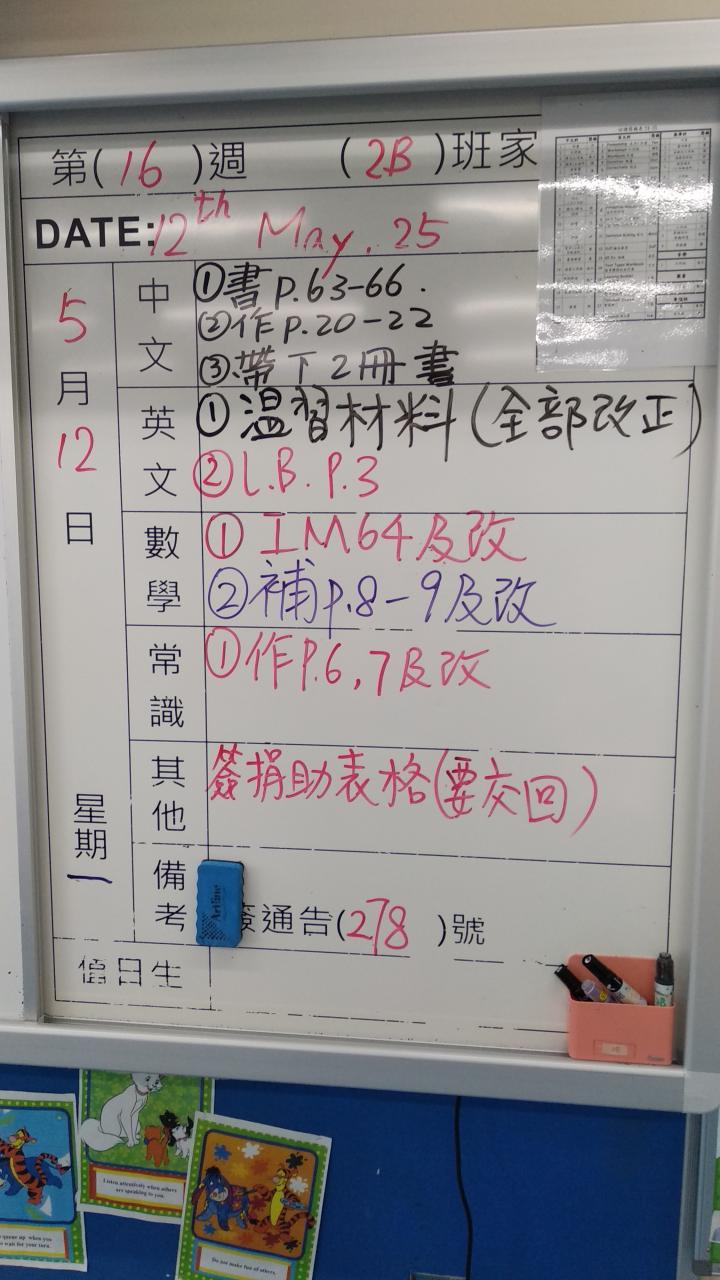 第(16)週 (2B)班家
DATE: 12th May, 25
5月12日
星期一
中文
①書p.63-66.
②作p.20-22
③帶下2冊書
英文
①溫習材料(全部改正)
②L.B. P.3
數學
①IM64及改
②補p.8-9及改
常識
①作P.6,7及改
其他
簽捐助表格(要交回)
備考
簽通告(278)號
值日生
Artline
Listen attentively when others
are speaking to you.
queue up when you
wait for your turn.
Do not make fun of others.